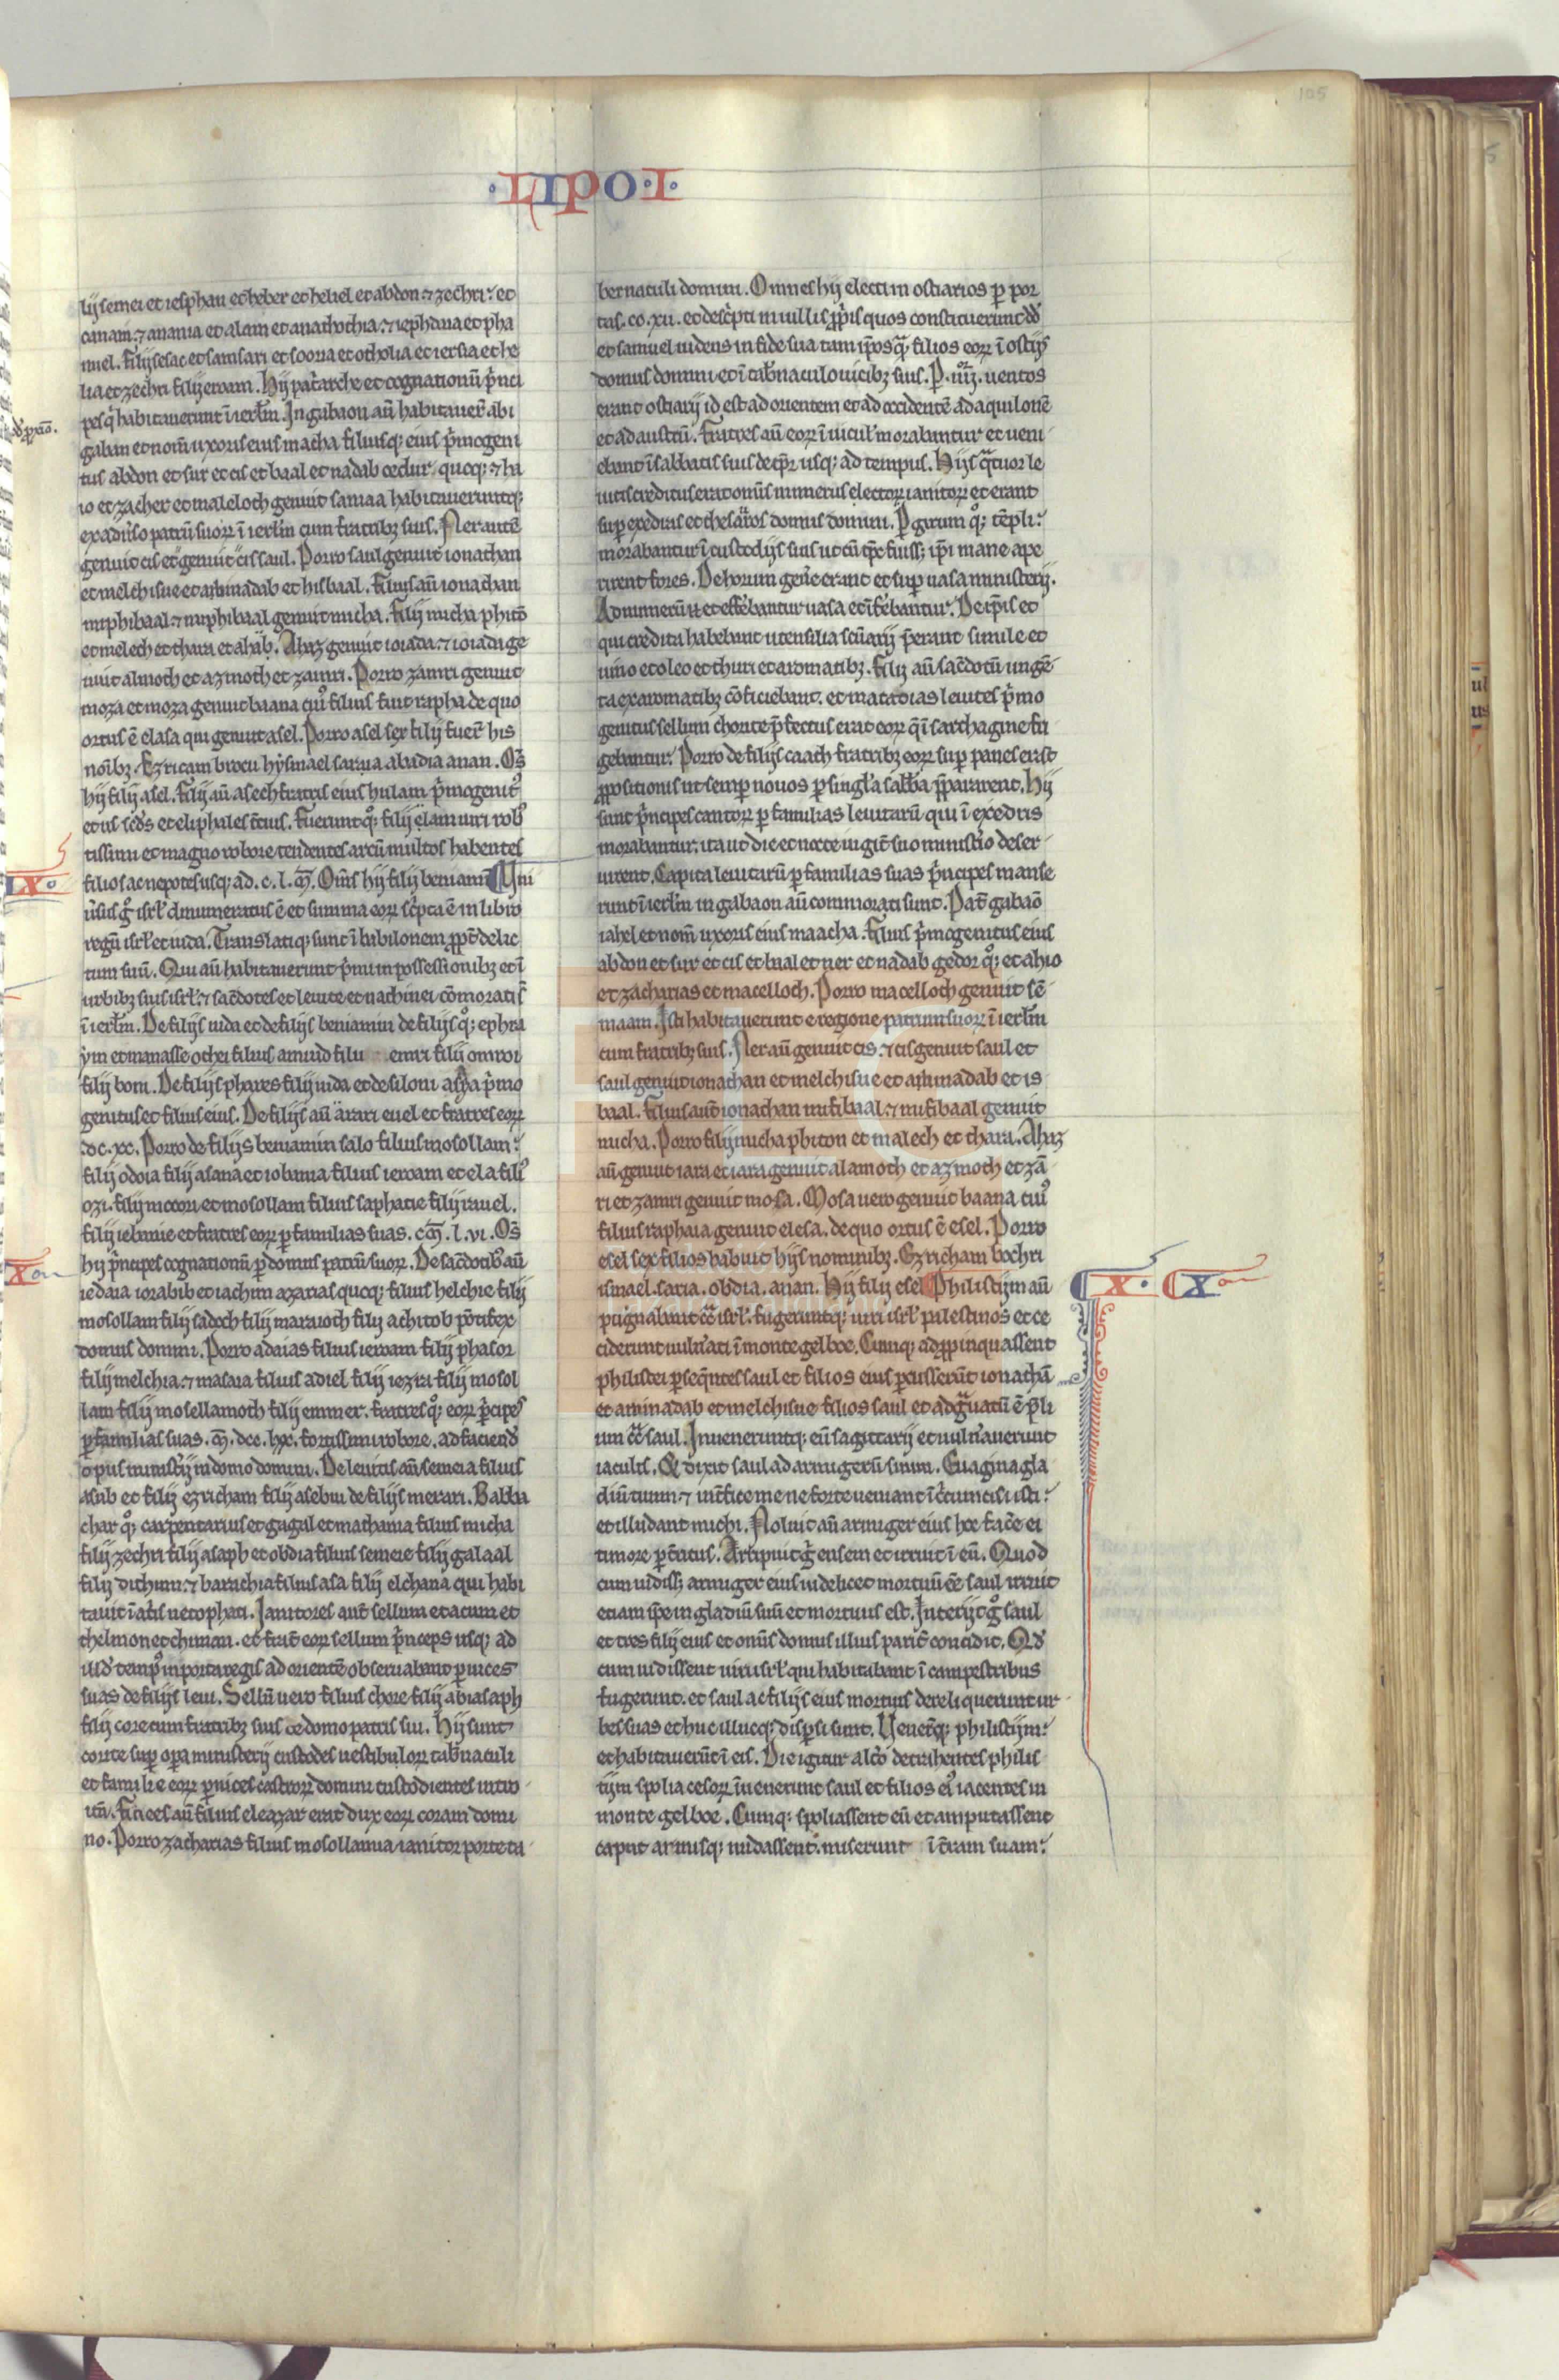 ·LIPO·I·
lij semei et iesphan et heber et heliel et abdon ⁊ zechri. et
canam. ⁊ anania et alam et anathothia. ⁊ iephdaia et pha
nuel. filij sesac et samsari et sooria et otholia et iersia et he
lia et zechri filij eroam. Hij pat͛arche et cognationū p͛nci
pes q̄ habitauerunt ī ierl̄m. In gabaon aū habitauer̄ abi
gaban et nom̄ uxoris eius macha filiusq; eius p͛mogeni
tus abdon et sur et cis et baal et nadab
io et zacher et maleloch genuit samaa habitaueruntq;
ex aduͥso patrū suoꝝ ī ierl̄m cum fratribꝫ suis. Ner autē
genuit cis et genuit cis saul. Porro saul genuit ionathan
et melchisue et abinadab et hisbaal. filius aū ionathan
miphibaal. ⁊ miphibaal genuit micha. filij micha phitō
et melech et thara et ahab. Ahaz genuit ioiada. ⁊ ioiada ge
nuit almoth et azmoth et zamri. Porro zamri genuit
moza et moza genuit baana cuiꝰ filius fuit rapha de quo
ortus ē elasa qui genuit asel. Porro asel sex filij fuer̄ his
noībꝫ. Ezricam brocu hysmael saria abadia anan. Oms̄
hij filij asel. filij aū asech fratris eius hulam p͛mogenitꝰ
et us scd̄s et eliphales t̄cius. fuerunt q; filij elam uiri robꝰ
tissimi et magno robore tendentes arcū multos habentes
LX·
filios ac nepotes usq; ad .c.l.ᵐ. Om̄s hij filij beniamī Uni
ūsus g̊ isrl̄ dinumeratus ē et summa eoꝝ sc͛pta ē in libro
regū isrl̄ et iuda. Translatiq; sunt ī babilonem ꝓpt̄ delic
tum suū. Qui aū habitauerunt p͛mi in possessionibꝫ et ī
urbibꝫ suis isrl̄. ⁊ sac̄dotes et leuite et nachinei cōmorati s̄
ī ierl̄m. De filijs iuda et de filijs beniamin de filijs q; ephra
ym et manasse othei filius amiud filii emri filij omroi
filij boni. De filijs phares filij iuda et de siloni asya p͛mo
genitus et filius eius. De filijs aū zarai euel et fratres eoꝝ
.dc.xc. Porro de filijs beniamin salo filius mosollam.
filij odoia filij asana et iobania filius ieroam et ela filiꝰ
ozi. filij moori et mosollam filius saphatie filij rauel.
filij iebanie et fratres eoꝝ p familias suas. .l.vi. Oms̄
X
hij p͛ncipes cognationū p domus patrū suoꝝ. De sac̄dotibꝰ aū
iedaia ioiabib et iachim azarias quoq; filius helchie filij
mosollam filij sadoch filij maraioth filij achitob pōtifex
domus domini. Porro adaias filius ieroam filij phasor
filij melchia. ⁊ masaia filius adiel filij iezra filij mosol
lam filij mosellamoth filij emmer. fratres q; eoꝝ p͛ncipes
p familias suas. ᵐ. dcc. lx. fortissimi robore. ad faciend̄
opus minist̄ij in domo domini. De leuitis aū semeia filius
asub et filij ezricham filij asebiu de filijs merari. Balba
char q; carpentarius et gagal et mathania filius micha
filij zechri filij asaph et obdia filius semeie filij galaal
filij dithim. ⁊ barachia filius asa filij elchana qui habi
tauit ī atīs netophati. Ianitores aut̄ sellum et acum et
thelmon et chiman. et frat̄ eoꝝ sellum p͛nceps usq; ad
illd̄ tempꝰ in porta regis ad orientē obseruabant p uices
suas de filijs leui. Sellū uero filius chore filij abiasaph
filij core cum fratribꝫ suis ce domo patris sui. Hij sunt
corite sup opa ministerij custodes uestibuloꝝ tab̄naculi
et familie eoꝝ p uices castroꝝ domini custodientes intro
itū. finees aū filius eleazar erat dux eoꝝ coram domi
no. Porro zacharias filius mosollamia ianitor porte ta
bernaculi domini. Omnes hij electi in ostiarios p por
tas .cc.xii. et desc͛pti in uillis ꝓp̄is quos constituerunt dd̄
et samuel uidens in fide sua tam ip̄os q̄ filios eoꝝ ī ostijs
domus domini et ī tab̄naculo uicibꝫ suis. P .iiiiᵒʳ. uentos
erant ostiarij id est ad orientem et ad occidentē ad aquilonē
et ad austrū. fratres aū eoꝝ ī uicul̄ morabantur et ueni
ebant ī sabbatis suis de tp̄r usq; ad tempus. Hijs q̄tuor le
uitis creditus erat om̄is numerus electoꝝ ianitoꝝ et erant
sup exedras et thesaͬros domus domini. P girum q; tēpli.
morabantur ī custodijs suis ut cū tp̄c fuiss; ip̄i mane ape
rirent fores. De horum gen̄e erant et sup uasa ministerij.
Ad numerū .n. et effe͛bantur uasa et īfe͛bantur. De ip̄is et
qui credita habebant utensilia scūarij p̄erant simile et
uino et oleo et thuri et aromatibꝫ. filij aū sac̄dotū ungē
ta ex aromatibꝫ cōficiebant. et matatias leuites p͛mo
genitus sellum chorite p̄fectus erat eoꝝ q̄ ī sarthagine fri
gebantur. Porro de filijs caath fratribꝫ eoꝝ sup panes erāt
ꝓpositionis ut semp nouos p singl̄a sabb̄a p̄pararent. Hij
sunt p͛ncipes cantoꝝ p familias leuitarū qui ī exedris
morabantur. ita ut die et nocte iugit̄ suo minist̄io deser
uirent. Capita leuitarū p familias suas p͛ncipes manse
runt ī ierl̄m in gabaon aū commorati sunt. Pat̄ gabaō
iahel et nom̄ uxoris eius maacha. filius p͛mogenitus eius
abdon et sur et cis et baal et ner et nadab gedor q; et ahio
et zacharias et macelloch. Porro macelloch genuit sē
maam. Isti habitauerunt e regione patrum suoꝝ ī ierl̄m
cum fratribꝫ suis. Ner aū genuit cis. ⁊ cis genuit saul et
saul genuit ionathan et melchisue et abinadab et is
baal. filius aut̄ ionathan mifibaal. ⁊ mifibaal genuit
micha. Porro filij micha phiton et malech et thara. Ahaz
aū genuit iara et iara genuit alamoth et azmoth et zā
ri et zamri genuit mosa. Mosa uero genuit baana cuiꝰ
filius raphaia genuit elesa. de quo ortus ē esel. Porro
esel sex filios habuit hijs nominibꝫ. Ezricham bochri
ismael. saria. obdia. anan. Hij filij esel Philistijm aū
X· X
pugnabant ct̄ isrl̄. fugeruntq; uiri isrl̄ palestinos et ce
ciderunt uuln̄ati ī monte gelboe. Cumq; adꝓpinquassent
philistei p seq̄ntes saul et filios eius pcusserūt ionathā
et aminadab et melchisue filios saul et adg̃uatū ē p̄li
um ct̄ saul. Inueneruntq; eū sagittarij et uuln̄auerunt
iaculis. Et dixit saul ad armigerū suum. Euagina gla
diū tuum. ⁊ int̄fice me ne forte ueniant īc̄cumcisi isti.
et illudant michi. Noluit aū armiger eius hoc fac̄e ei
timore pt̄ritus. Arripuit g̊ ensem et irruit ī eū. Quod
cum uidiss; armiger eius uidelicet mortuū ee͛ saul irruit
etiam ip̄e in gladiū suū et mortuus est. Interijt g̊ saul
et tres filij eius et om̄is domus illius parit̄ concidit. Qd̄
cum uidissent uiri isrl̄ qui habitabant ī campestribus
fugerunt. et saul ac filijs eius mortuis dereliquerunt ur
bes suas et huc illucq; disp̄si sunt. Uener̄q; philistijm.
et habitauerūt ī eis. Die igitur alt͛o detrahentes philis
tijm spolia cesoꝝ īuenerunt saul et filios eiꝰ iacentes in
monte gelboe. Cumq; spoliassent eū et amputassent
caput armisq; nudassent. miserunt ī t̄ram suam.